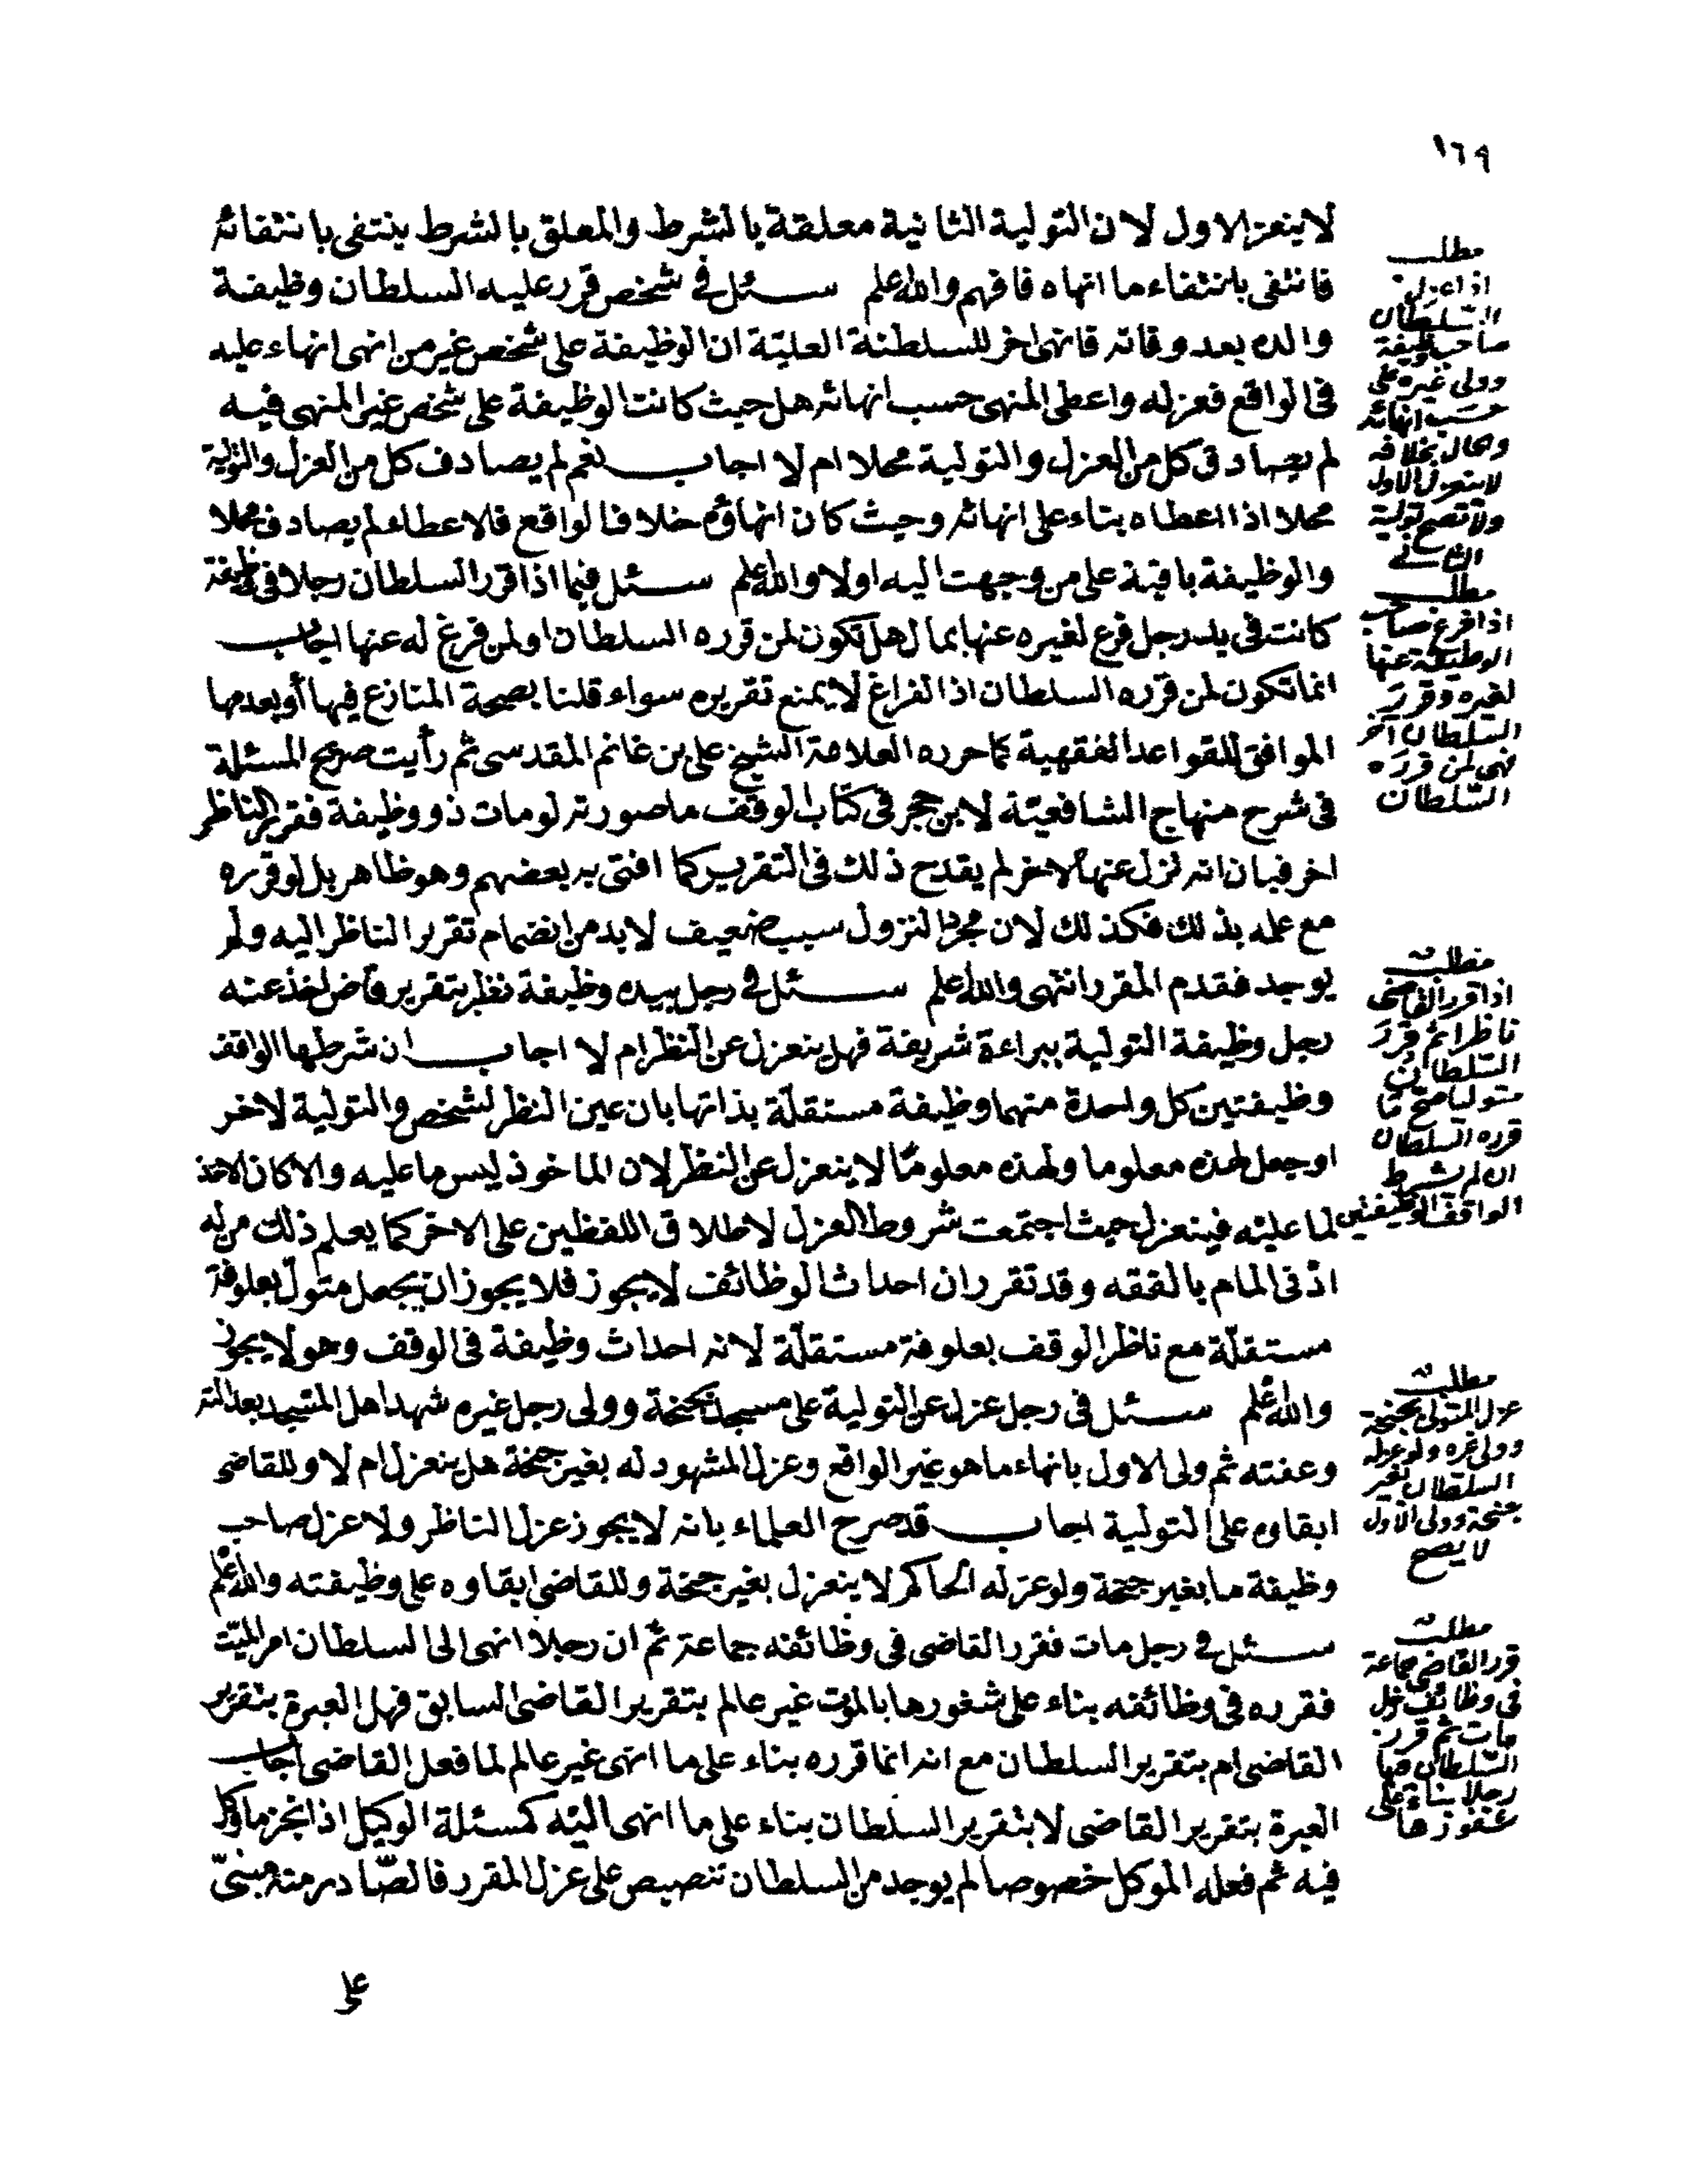 ١٦٩
لا ينعزل الاول لان التولية الثانية معلقة بالشرط والمعلق بالشرط ينتفى بانتفائه
فانتفى بانتفاء ما انهاه فافهم والله اعلم سئل فى شخص قرر عليه السلطان وظيفة
والده بعد وفاته فانهى اخر للسلطنة العليّة ان الوظيفة على شخص غير من انهى انهاء عليه
فى الواقع فعزله واعطى المنهى حسب انهائه هل حيث كانت الوظيفة على شخص غير المنهى فيه
لم يصادف كل من العزل والتولية محلا ام لا اجاب نعم لم يصادف كل من العزل والتولية
محلا اذا اعطاه بناء على انهائه وحيث كان انهاؤه خلاف الواقع فالاعطاء لم يصادف محلا
والوظيفة باقية على من وجهت اليه اولا والله اعلم سئل فيما اذا قرر السلطان رجلا فى وظيفة
كانت فى يد رجل فرغ لغيره عنها بمال هل تكون لمن قرره السلطان او لمن فرغ له عنها اجاب
انما تكون لمن قرره السلطان اذ الفراغ لا يمنع تقريره سواء قلنا بصحة المتنازع فيها أو بعدمها
الموافق للقواعد الفقهية كما حرره العلامة الشيخ على بن غانم المقدسى ثم رأيت صريح المسئلة
فى شرح منهاج الشافعيّة لابن حجر فى كتاب الوقف ما صورته لو مات ذو وظيفة فقرر الناظر
اخر فبان انه نزل عنها لاخر لم يقدح ذلك فى التقرير كما افتى به بعضهم وهو ظاهر بل لو قرره
مع علمه بذلك فكذلك لان مجرد النزول سبب ضعيف لا بد من انضمام تقرير الناظر اليه ولم
يوجد فقدم المقرر انتهى والله اعلم سئل فى رجل بيده وظيفة نظر بتقرير قاض اخذ عنه
رجل وظيفة التولية ببراءة شريفة فهل ينعزل عن النظر ام لا اجاب ان شرطها الواقف
وظيفتين كل واحدة منهما وظيفة مستقلّة بذاتها بان عين النظر لشخص والتولية لاخر
او جعل لهذه معلوما ولهذه معلومًا لا ينعزل عن النظر لان الماخوذ ليس ما عليه والا كان الاخذ
لما عليه فينعزل حيث اجتمعت شروط العزل لاطلاق اللفظين على الاخر كما يعلم ذلك من له
ادنى المام بالفقه وقد تقرر ان احداث الوظائف لا يجوز فلا يجوز ان يجعل متولّ بعلوفة
مستقلّة مع ناظر الوقف بعلوفة مستقلّة لانه احداث وظيفة فى الوقف وهو لا يجوز
والله اعلم سئل فى رجل عزل عن التولية على مسجد بجنحة وولى رجل غيره شهد اهل المسجد بعدالته
وعفته ثم ولى الاول بانهاء ما هو غير الواقع وعزل المشهود له بغير جنحة هل ينعزل ام لا وللقاضى
ابقاوه على التولية اجاب قد صرح العلماء بانه لا يجوز عزل الناظر ولا عزل صاحب
وظيفة ما بغير جنحة ولو عزله الحاكم لا ينعزل بغير جنحة وللقاضى ابقاوه على وظيفته والله اعلم
سئل فى رجل مات فقرر القاضى فى وظائفه جماعة ثم ان رجلا انهى الى السلطان امر الميّت
فقرره فى وظائفه بناء على شغورها بالموت غير عالم بتقرير القاضى السابق فهل العبرة بتقرير
القاضى ام بتقرير السلطان مع انه انما قرره بناء على ما انهى غير عالم لما فعل القاضى اجاب
العبرة بتقرير القاضى لا بتقرير السلطان بناء على ما انهى اليه كمسئلة الوكيل اذا انجز ما وكل
فيه ثم فعله الموكل خصوصا لم يوجد من السلطان تنصيص على عزل المقرر فالصّادر منه مبنىّ
على
مطلب
اذا عزل
السّلطان
صاحب وظيفة
وولى غيره على
حسب انهائه
وكان بخلافه
لا ينعزل الاول
ولا تصح تولية
الثانى
مطلب
اذا فرغ صاحب
الوظيفة عنها
لغيره وقرر
السلطان آخر
فهى لمن قرره
السّلطان
مطلب
اذا قرر القاضى
ناظرا ثم قرر
السّلطان
متوليا صح ما
قرره السلطان
ان لم يشرط
الواقف الوظيفتين
مطلب
عزل المتولى بجنحة
وولى غيره ولو عزله
السلطان بغير
جنحة وولى الاول
لا يصح
مطلب
قرر القاضى جماعة
فى وظائف رجل
مات ثم قرر
السّلطان فيها
رجلا بناء على
شغورها